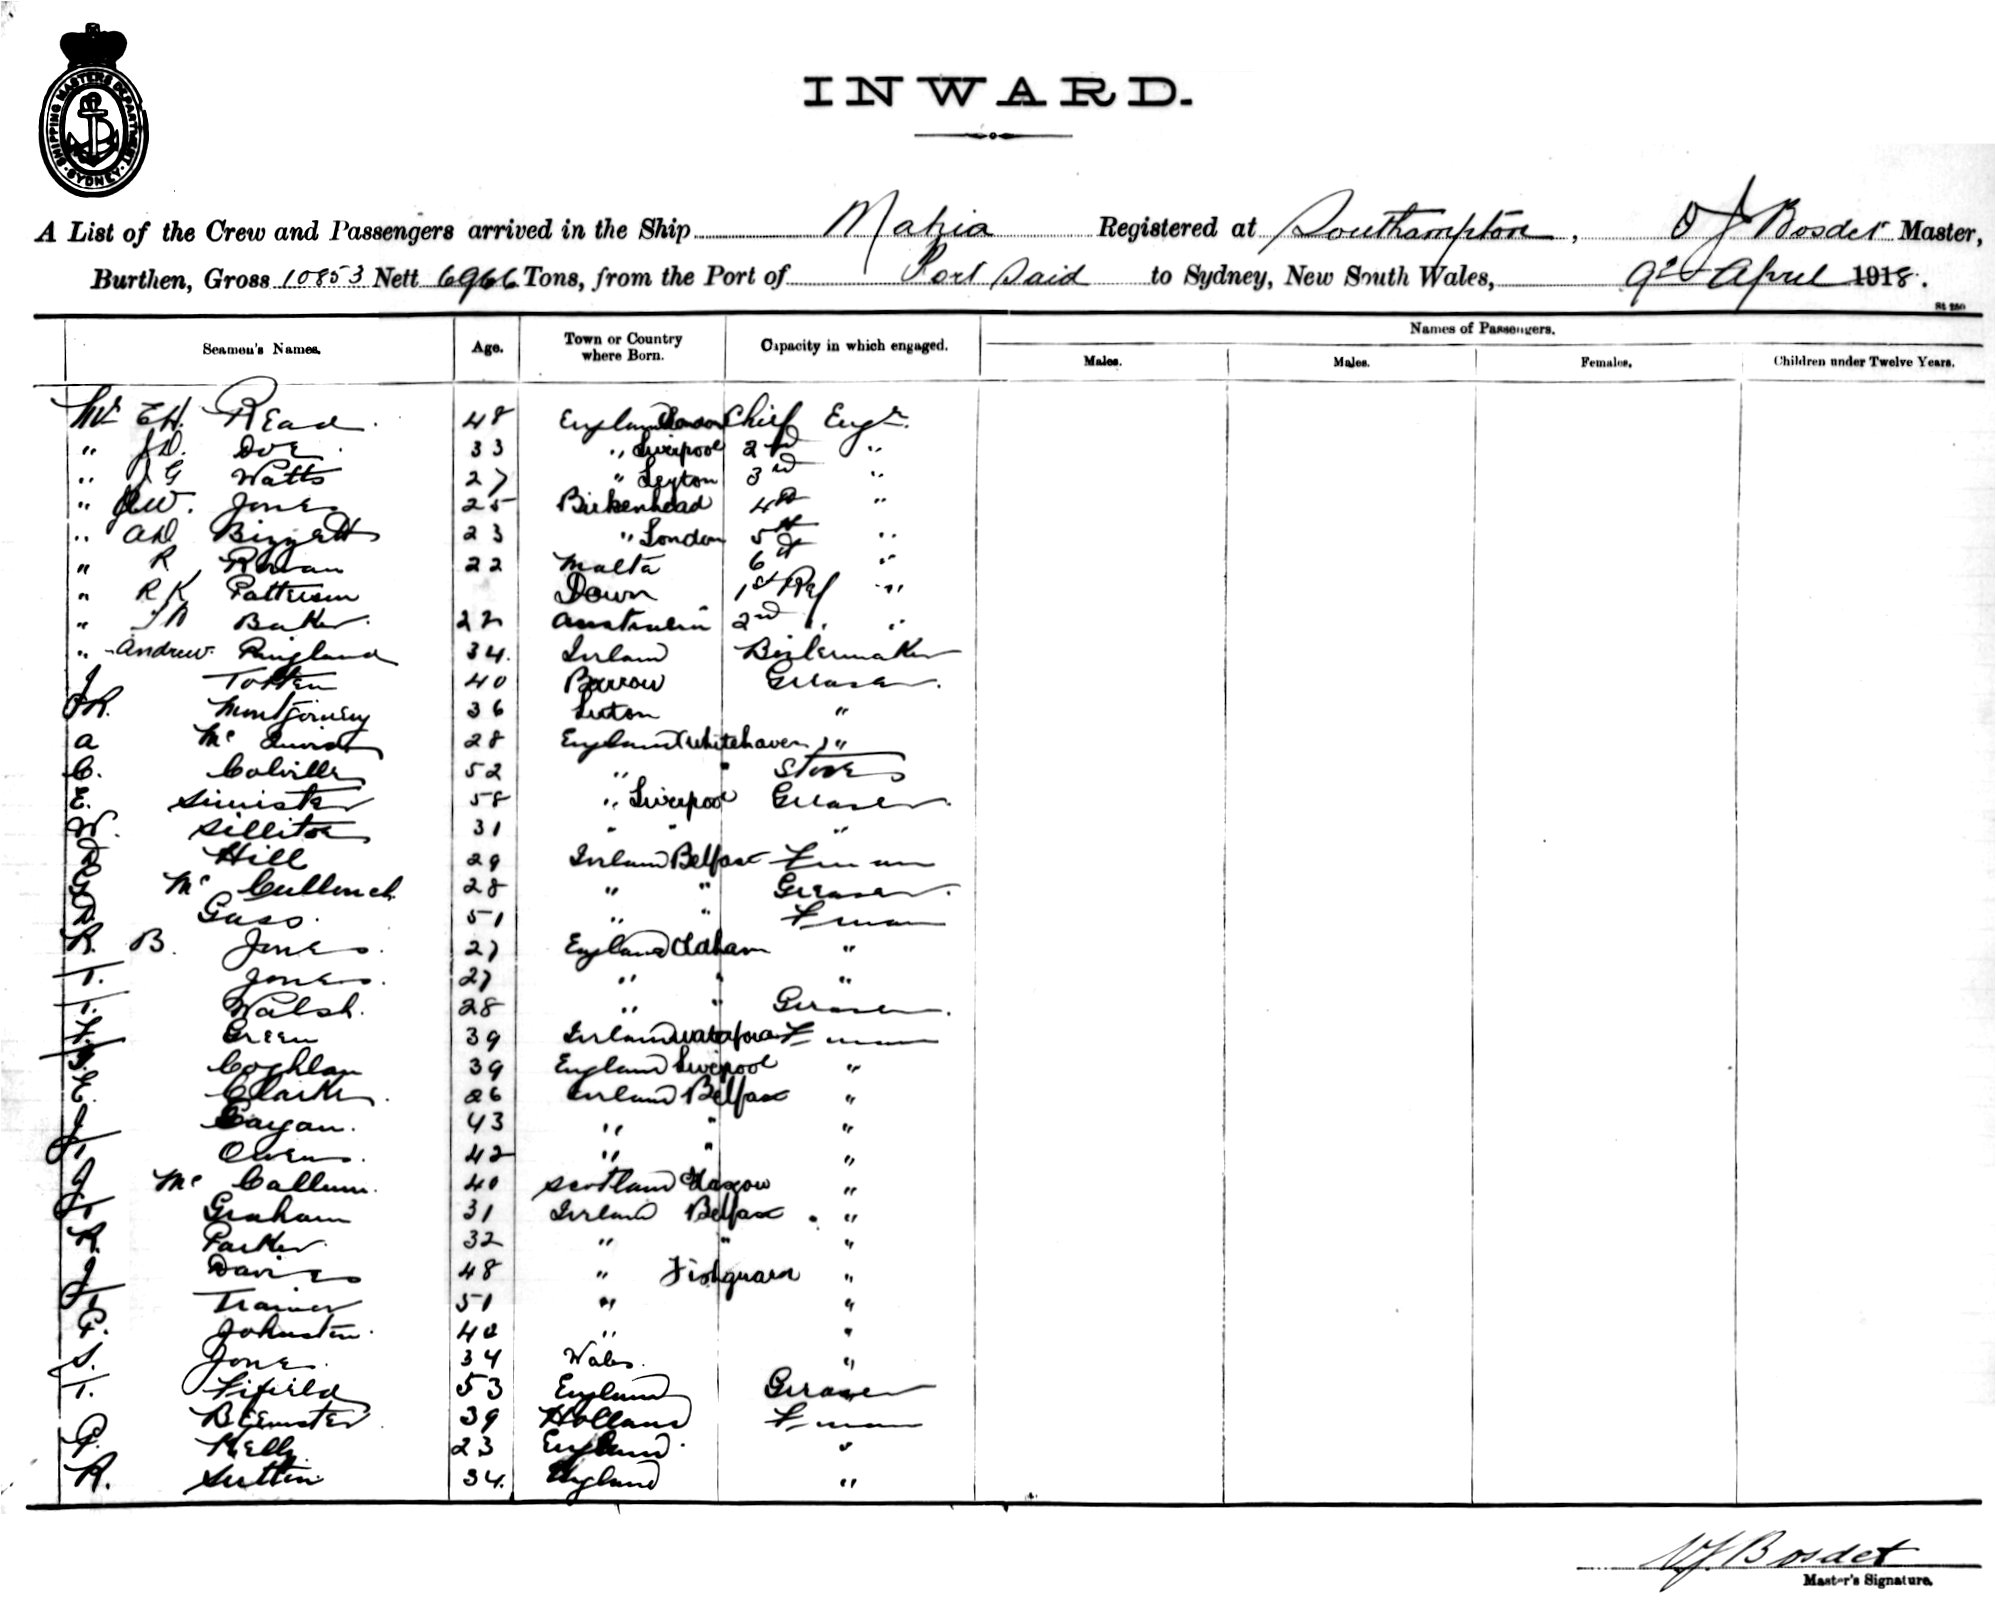 SHIPPING MASTERS DEPARTMENT. SYDNEY.
INWARD.
A List of the Crew and Passengers arrived in the Ship Mahia Registered at Southampton, D J Bosdet Master,
Burthen, Gross 10853 Nett 6966 Tons, from the Port of Port Said to Sydney, New South Wales, 9th April 1918.
Names of Passengers.
Seamen's Names. Age. Town or Country where Born. Capacity in which engaged. Males. Males. Females. Children under Twelve Years.
Mr E.H. Read 48 England London Chief Engr.
" J.D. Doe 33 " Liverpool 2nd "
" J G Watts 27 " Leyton 3rd "
" J.W. Jones 25 Birkenhead 4th "
" A.D. Bizzett 23 " London 5th "
" R 22 Malta 6th "
" R K Patterson Down 1st Ref "
" Baker 22 Australia 2nd " "
" Andrew Ringland 34. Ireland Boilermaker
J Totten 40 Barrow Greaser.
J.R. Montgomery 36 Luton "
A Mc 28 England (Whitehaven) "
C. Colville 52 " " Stores
E. Simister 58 " Liverpool Greaser.
W. Sillitoe 31 " " "
D Hill 29 Ireland Belfast Fman
G Mc Cullouch 28 " " Greaser.
D. Gass. 51 " " Fman
R. B. Jones. 27 England Oldham "
T. Jones. 27 " " "
T. Walsh. 28 " " Greaser.
F. Green 39 Ireland Waterford Fman
J. Coghlan 39 England Liverpool "
E. Clarke. 26 Ireland Belfast "
J Eagan. 43 " " "
T. Owens. 42 " " "
J Mc Callum. 40 Scotland Glasgow "
T. Graham 31 Ireland Belfast. "
R. Parker. 32 " " "
J Davies 48 " Fishguard "
T. Trainer 51 " "
P. Johnston. 40 " "
S. Jones. 34 Wales. "
T. Fifield 53 England Greaser
Bremster 39 Holland Fman
P. Kelly 23 England. "
R. Sutton 34. England "
D J Bosdet
Master's Signature.